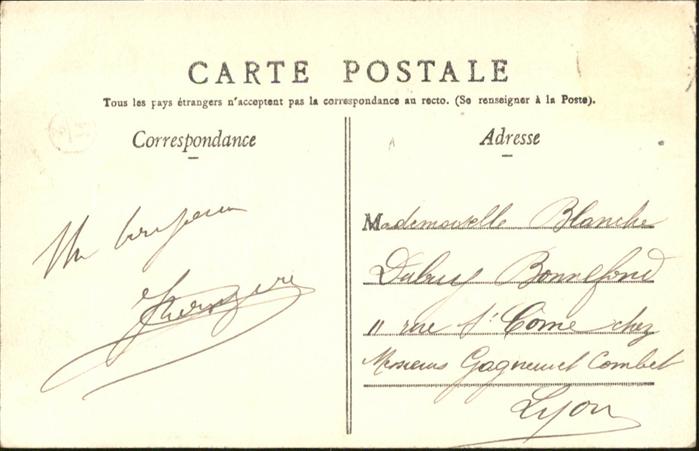 CARTE POSTALE
Tous les pays étrangers n'acceptent pas la correspondance au recto. (Se renseigner à la Poste).
Correspondance
Adresse
Un
Mademoiselle Blanche
Dubuy Bonnefond
11 rue St Come chez
Messieurs Combet
Lyon